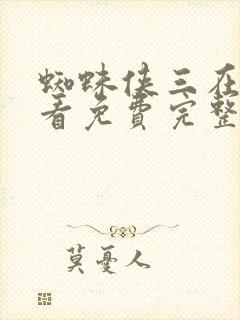 蜘蛛侠三在
看免費完整
莫憂人